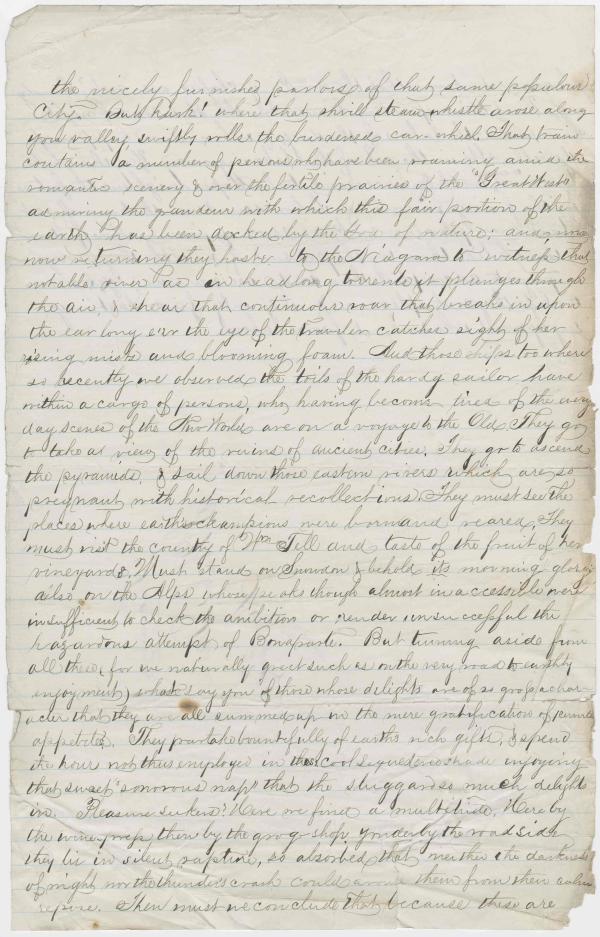 the nicely furnished parlors of that same populous
City. But hark! where that shrill steam whistle arose along
yon valley swiftly rolls the burdened car-wheel. That train
contains a number of persons who have been roaming amid the
romantic scenery & over the fertile prairies of the "Great West"
admiring the grandeur with which this fair portion of the
earth has been decked by the God of nature; and
now returning they haste to the Niagara to witness that
notable river as in headlong torrents it plunges through
the air, & hear that continuous roar that breaks in upon
the ear long e'er the eye of the traveler catches sight of her
rising mists and blooming foam. And those ships too where
so recently we observed the toils of the hardy sailor have
within a cargo of persons, who, having become tired of the every
day scenes of the New World are on a voyage to the Old. They go
to take a view of the ruins of ancient cities. They go to ascend
the pyramids, & sail down those eastern rivers which are so
pregnant with historical recollections. They must see the
places where earths champions were born and reared. They
must visit the country of Wm Tell and taste of the fruit of her
vineyards. Must stand on Snowdon & behold its morning glories
also on the Alps whose peaks though almost inaccessible were
insufficient to check the ambition or render unsuccessful the
hazardous attempt of Bonaparte. But turning aside from
all these, for we naturally greet such as on the very road to earthly
enjoyment, what say you of those whose delights are of so gross a char-
acter that they are all summed up in the mere gratification of
appetites. They partake bountifully of earth's rich gifts, & spend
the hour not thus employed in the cool sequestered shade enjoying
that sweet "sonorous nap" that the sluggard so much delights
in. Pleasure seekers! Here we find a multitude. Here by
the wine press there by the grog-shop yonder by the road side
they lie in silent rapture, so absorbed that neither the darkness
of night nor the thunder's crash could arouse them from their calm
repose. Then must we conclude that because these are